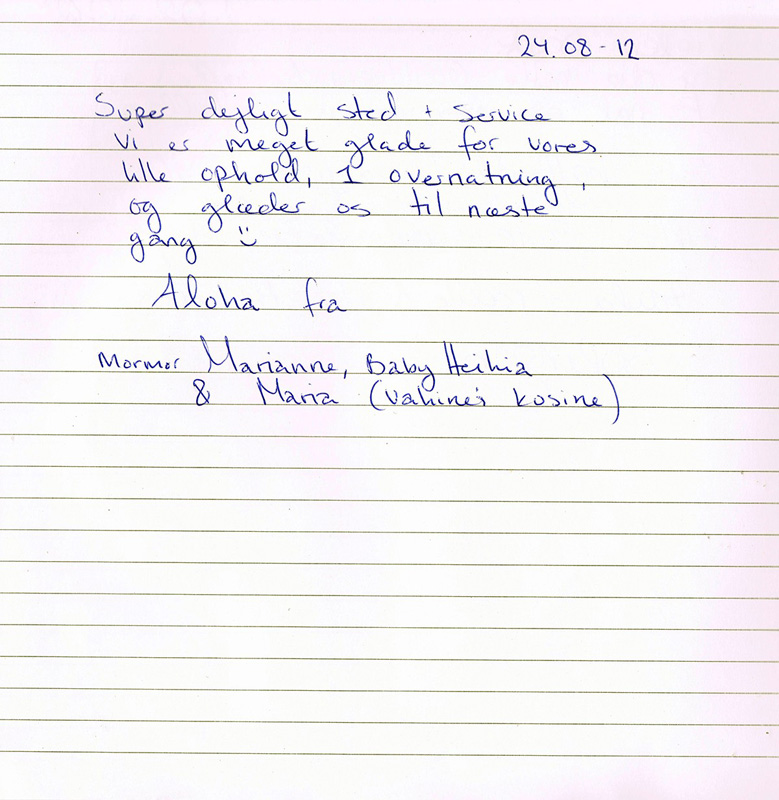 24.08-12
Super dejligt sted + service
Vi er meget glade for vores
lille ophold, 1 overnatning,
og glæder os til næste
gang :)
Aloha fra
Mormor Marianne, Baby Heihia
& Maria (Vahine's kosine)